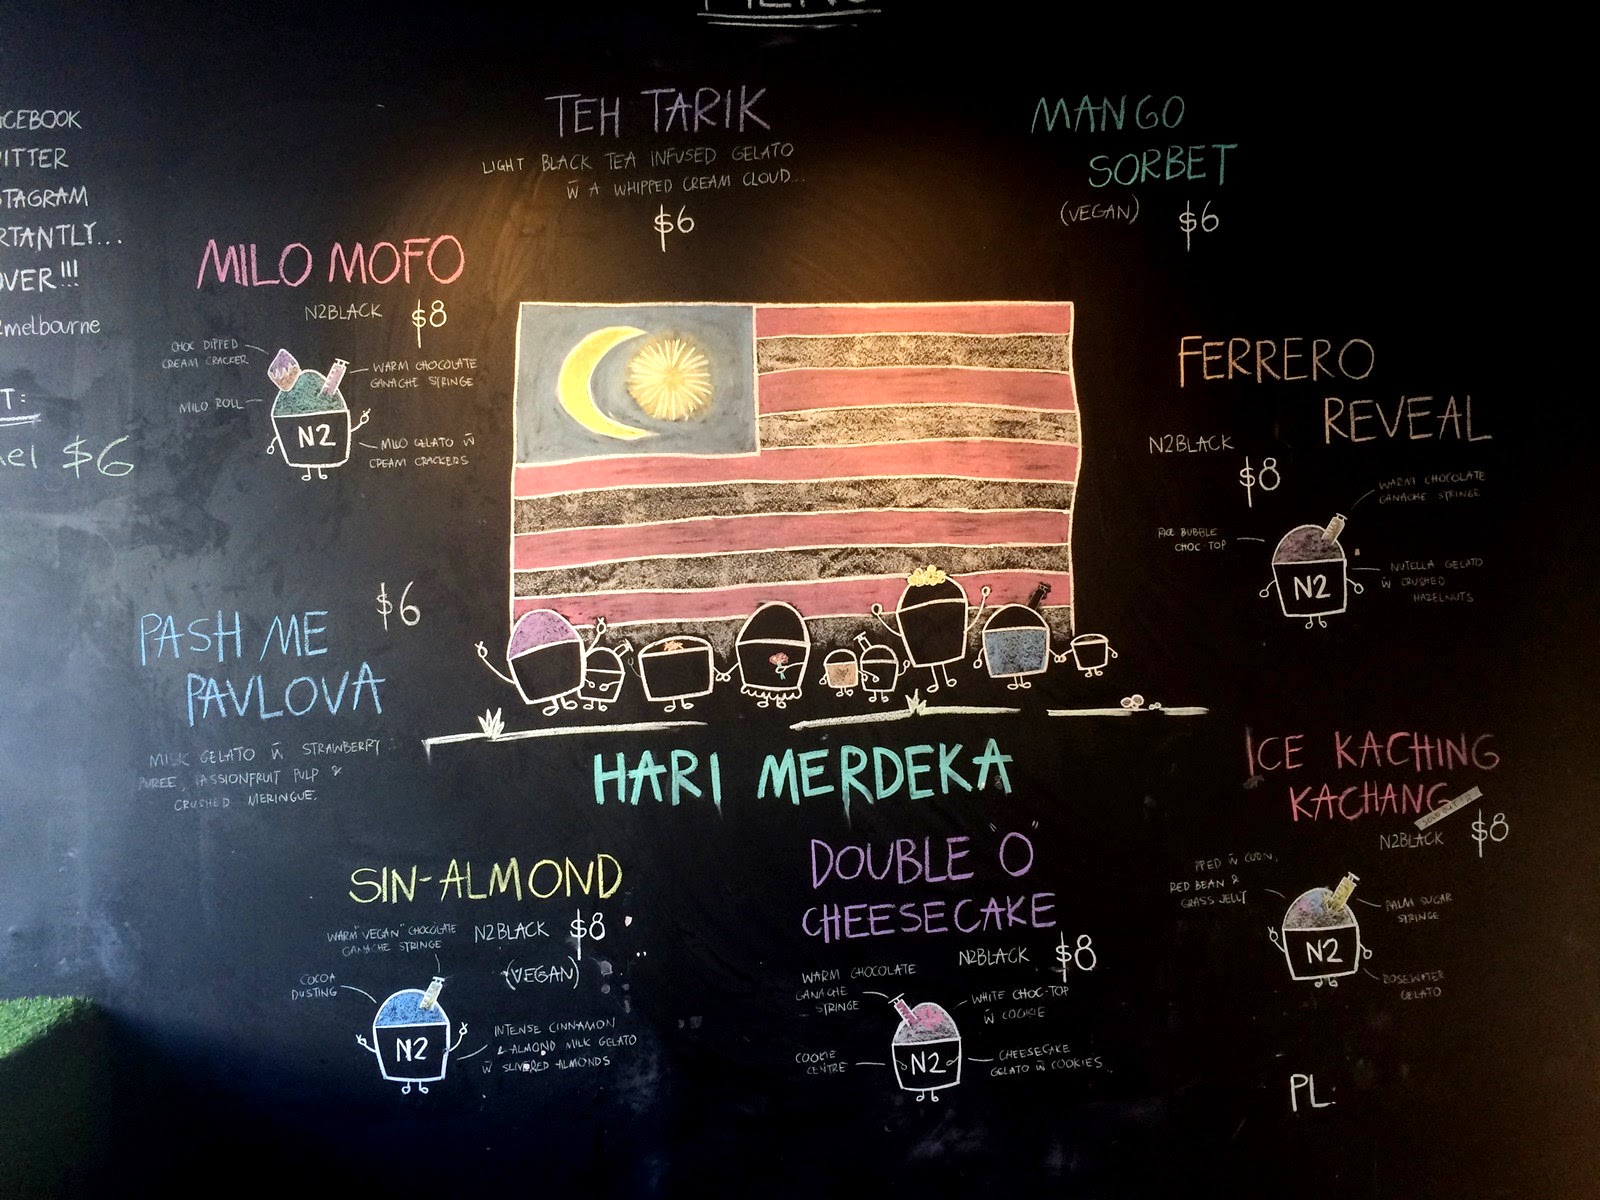 MENU
TEH TARIK
LIGHT BLACK TEA INFUSED GELATO
W̄ A WHIPPED CREAM CLOUD...
$6
MANGO
SORBET
(VEGAN) $6
ACEBOOK
ITTER
STAGRAM
RTANTLY...
OVER!!!
melbourne
T:
el $6
MILO MOFO
N2BLACK $8
CHOC DIPPED
CREAM CRACKER
WARM CHOCOLATE
GANACHE STRINGE
MILO ROLL
N2
MILO GELATO W̄
CREAM CRACKERS
FERRERO
REVEAL
N2BLACK
$8
WARM CHOCOLATE
GANACHE STRINGE
BUBBLE
CHOC-TOP
N2
NUTELLA GELATO
W̄ CRUSHED
HAZELNUTS
$6
PASH ME
PAVLOVA
MILK GELATO W̄ STRAWBERRY
PUREE, PASSIONFRUIT PULP &
CRUSHED MERINGUE.
HARI MERDEKA
ICE KACHING
KACHANG
SOLD OUT
N2BLACK $8
W̄ CORN,
RED BEAN &
GRASS JELLY
PALM SUGAR
STRINGE
N2
ROSEWATER
GELATO
SIN-ALMOND
WARM "VEGAN" CHOCOLATE
GANACHE STRINGE
N2BLACK $8
(VEGAN)
COCOA
DUSTING
N2
INTENSE CINNAMON
& ALMOND MILK GELATO
W̄ SLIVERED ALMONDS
DOUBLE "O"
CHEESECAKE
N2BLACK $8
WARM CHOCOLATE
GANACHE
STRINGE
WHITE CHOC-TOP
W̄ COOKIE
COOKIE
CENTRE
N2
CHEESECAKE
GELATO W̄ COOKIES..
PL: